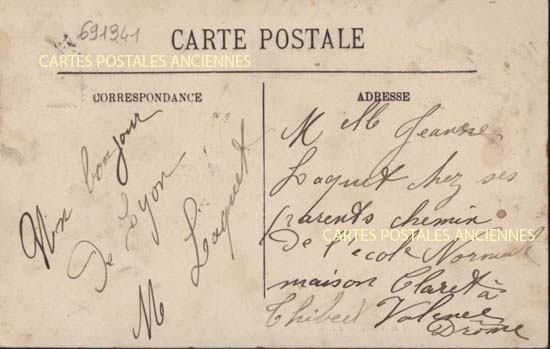 691341
CARTE POSTALE
CARTES POSTALES ANCIENNES
CORRESPONDANCE
Un bonjour
de Lyon
M Laquet
ADRESSE
Mlle Jeanne
Laquet chez ses
parents chemin
De l'école Normal
CARTES POSTALES ANCIENNES
maison Claret à
Valence
Drôme